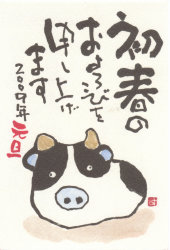 初春の
およろこびを
申し上げ
ます
2009年
元旦